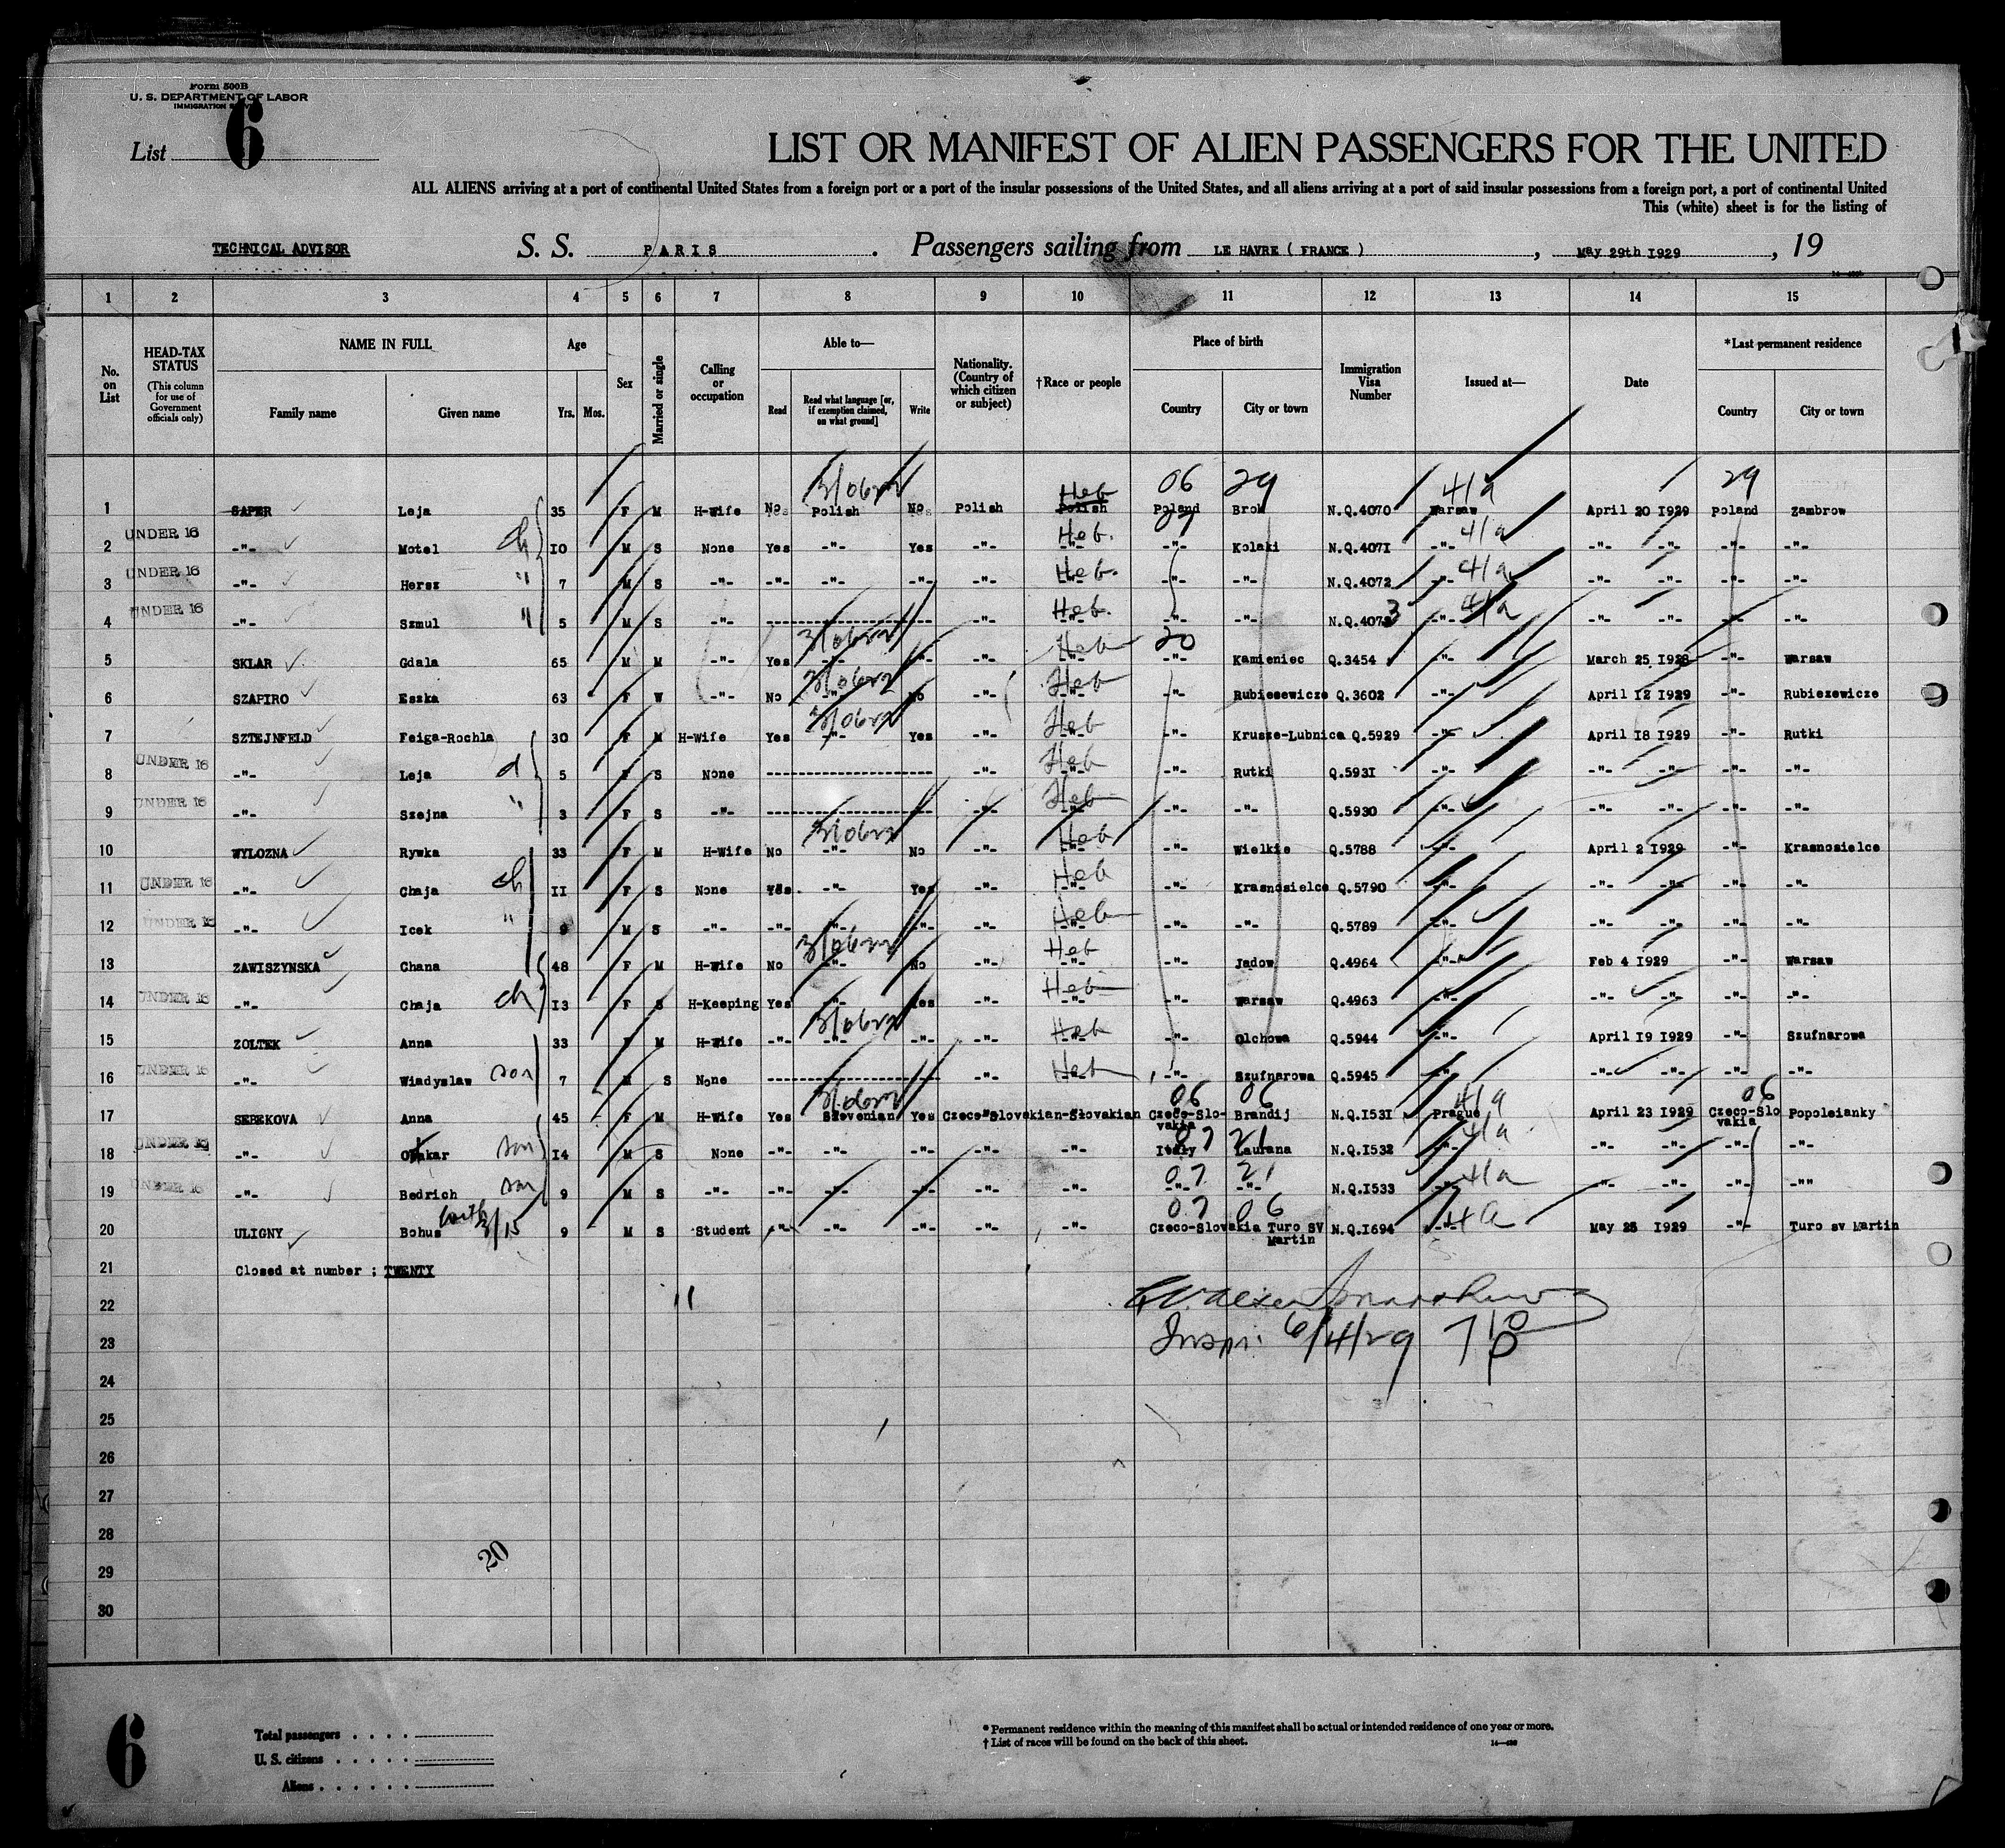 Form 500B
U. S. DEPARTMENT OF LABOR
IMMIGRATION
List 6
LIST OR MANIFEST OF ALIEN PASSENGERS FOR THE UNITED
ALL ALIENS arriving at a port of continental United States from a foreign port or a port of the insular possessions of the United States, and all aliens arriving at a port of said insular possessions from a foreign port, a port of continental United
This (white) sheet is for the listing of
TECHNICAL ADVISOR S. S. PARIS . Passengers sailing from LE HAVRE ( FRANCE ) , May 29th 1929 , 19
1 2 3 4 5 6 7 8 9 10 11 12 13 14 15
No. on List HEAD-TAX STATUS (This column for use of Government officials only) NAME IN FULL Family name Given name Age Yrs. Mos. Sex Married or single Calling or occupation Able to— Read Read what language [or, if exemption claimed, on what ground] Write Nationality. (Country of which citizen or subject) †Race or people Place of birth Country City or town Immigration Visa Number Issued at— Date *Last permanent residence Country City or town
3/0622 06 29 41a 29
1 SAPER Leja 35 F M H-Wife No Polish No Polish Heb Polish Poland Brok N.Q.4070 Warsaw April 20 1929 Poland Zambrow
2 UNDER 16 -"- Motel ch 10 M S None Yes -"- Yes -"- Heb. -"- 27 -"- Kolaki N.Q.4071 -"- 41a -"- -"- -"- -"-
3 UNDER 16 -"- Hersz " 7 M S -"- -"- -"- -"- -"- Heb. -"- -"- -"- N.Q.4072 -"- 41a -"- -"- -"- -"-
4 UNDER 16 -"- Szmul " 5 M S -"- -"- Heb. -"- -"- -"- N.Q.4073 -"- 41a -"- -"- -"- -"-
5 SKLAR Gdala 65 M M -"- Yes -"- -"- -"- Heb -"- 20 -"- Kamieniec Q.3454 -"- March 25 1928 -"- Warsaw
6 SZAPIRO Eszka 63 F W -"- No -"- No -"- Heb -"- -"- Rubiesewicze Q.3602 -"- April 12 1929 -"- Rubiezewicze
7 SZTEJNFELD Feiga-Rochla 30 F M H-Wife Yes -"- Yes -"- Heb -"- -"- Krusze-Lubnica Q.5929 -"- April 18 1929 -"- Rutki
8 UNDER 16 -"- Leja d 5 F S None -"- Heb -"- -"- Rutki Q.5931 -"- -"- -"- -"- -"-
9 UNDER 16 -"- Szejna " 3 F S -"- -"- Heb -"- -"- -"- Q.5930 -"- -"- -"- -"- -"-
10 WYLOZNA Rywka 33 F M H-Wife No -"- No -"- Heb -"- -"- Wielkie Q.5788 -"- April 2 1929 -"- Krasnosielce
11 UNDER 16 -"- Chaja ch 11 F S None Yes -"- Yes -"- Heb -"- -"- Krasnosielce Q.5790 -"- -"- -"- -"- -"-
12 UNDER 16 -"- Icek " 9 M S -"- -"- -"- -"- -"- Heb -"- -"- -"- Q.5789 -"- -"- -"- -"- -"-
13 ZAWISZYNSKA Chana 48 F M H-Wife No -"- No -"- Heb -"- -"- Jadow Q.4964 -"- Feb 4 1929 -"- Warsaw
14 UNDER 16 -"- Chaja ch 13 F S H-Keeping Yes -"- Yes -"- Heb -"- -"- Warsaw Q.4963 -"- -"- -"- -"- -"-
15 ZOLTEK Anna 33 F M H-Wife -"- -"- -"- -"- Heb -"- -"- Olchowa Q.5944 -"- April 19 1929 -"- Szufnarowa
16 UNDER 16 -"- Wladyslaw son 7 M S None -"- Heb -"- -"- Szufnarowa Q.5945 -"- -"- -"- -"- -"-
06 06 41a 06
17 SEBEKOVA Anna 45 F M H-Wife Yes Slovenian Yes Czeco-Slovakian-Slovakian Czeco-Slovakia Brandij N.Q.1531 Prague April 23 1929 Czeco-Slovakia Popoleianky
18 UNDER 16 -"- Otakar son 14 M S None -"- -"- -"- -"- -"- 07 Italy 21 Laurana N.Q.1532 -"- 41a -"- -"- -"- -"-
19 UNDER 16 -"- Bedrich son 9 M S -"- -"- -"- -"- -"- -"- 07 -"- 21 -"- N.Q.1533 -"- 41a -"- -"- -"- -""
20 ULIGNY Bohus with 3/15 9 M S Student -"- -"- -"- -"- -"- 07 Czeco-Slovakia 06 Turo SV Martin N.Q.1694 -"- 4a May 25 1929 -"- Turo sv Martin
21 Closed at number ; TWENTY
22
23 Inspr. 6/4/29
24
25
26
27
28
20
29
30
6
Total passengers . . . .
U. S. citizens . . . . .
Aliens . . . . . .
* Permanent residence within the meaning of this manifest shall be actual or intended residence of one year or more.
† List of races will be found on the back of this sheet.